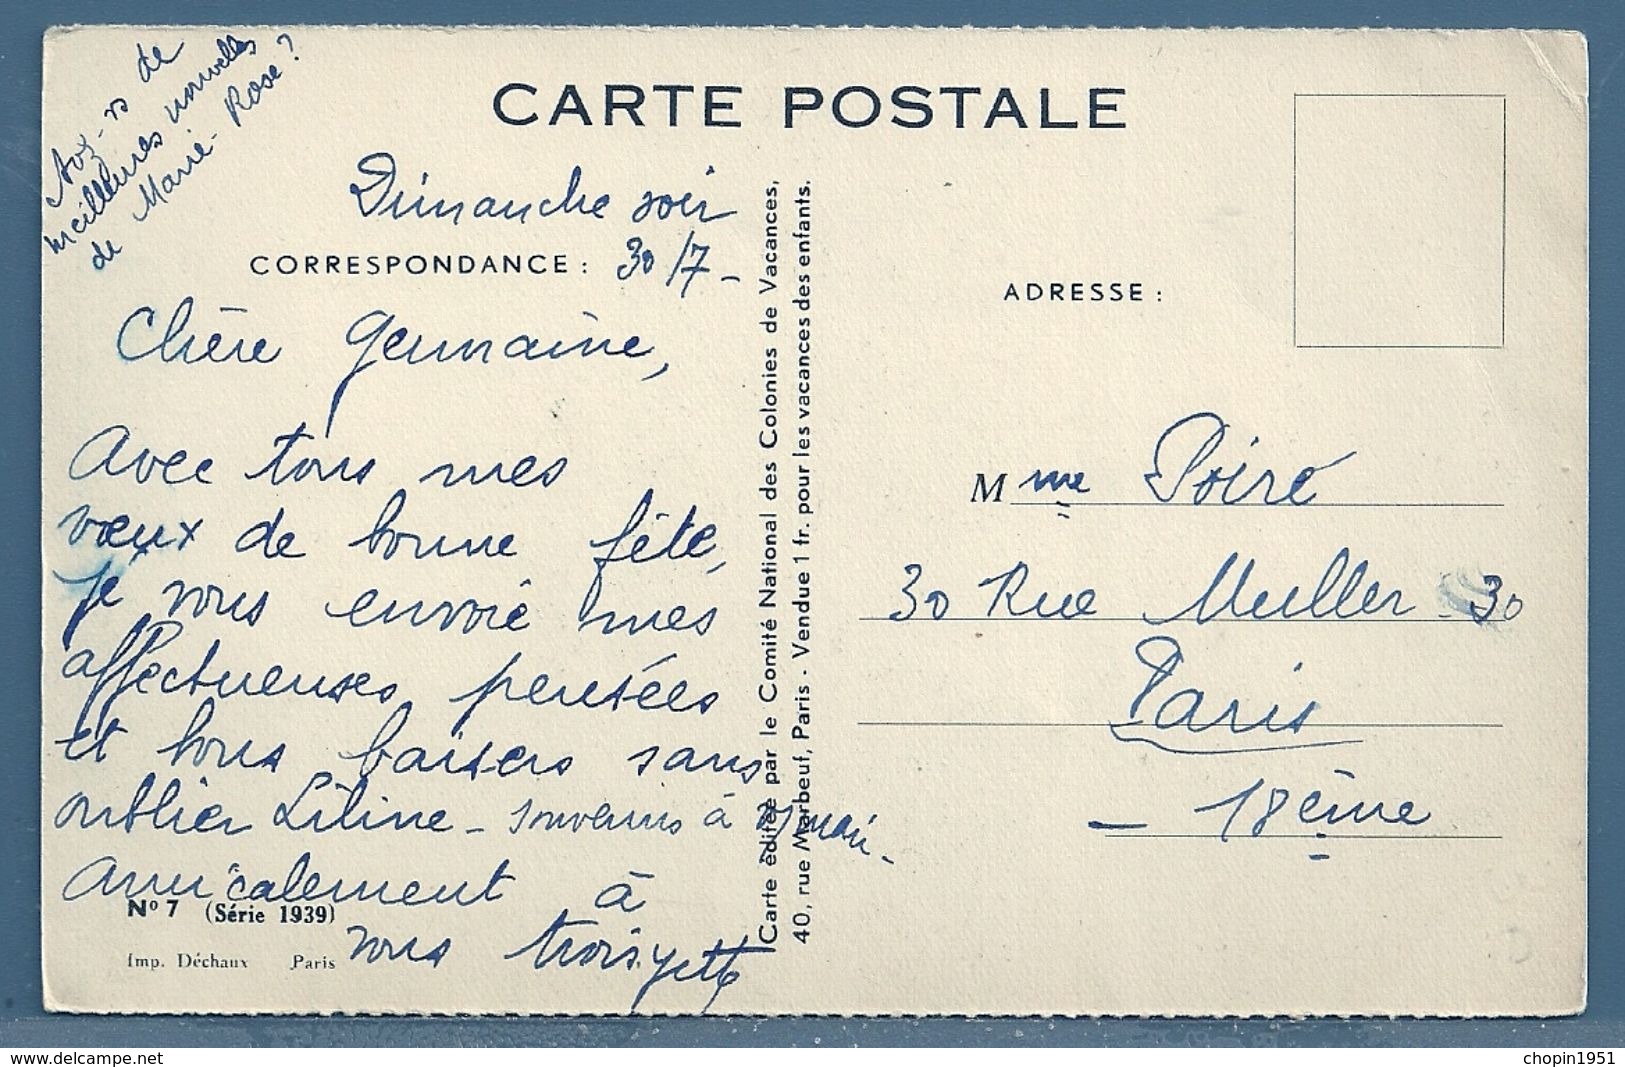 Avz-vs de
meilleures nouvelles
de Marie-Rose?
CARTE POSTALE
Dimanche soir
CORRESPONDANCE : 30/7-
Chère Germaine,
Avec tous mes
vœux de bonne fête,
je vous envoie mes
affectueuses pensées
et bons baisers sans
oublier Liline - souvenirs à vs mari-
Amicalement à
vous trois,
N° 7 (Série 1939)
Imp. Déchaux Paris
Carte éditée par le Comité National des Colonies de Vacances,
40, rue Marbeuf, Paris - Vendue 1 fr. pour les vacances des enfants.
ADRESSE :
Mme Poiré
30 Rue Muller - 30
Paris
- 18ème
www.delcampe.net
chopin1951